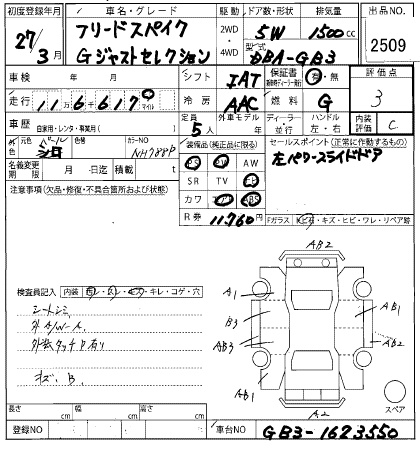 初度登録年月 車名・グレード 駆動 ドア数・形状 排気量 出品NO.
27/3月 フリードスパイク 2WD 5W 1500cc 2509
Gジャストセレクション 4WD 型式 DBA-GB3
車検 年 月 シフト IAT 保証書 有・無 評価点
走行 11万6千617 マイル 冷房 AAC 燃料 G 3
車歴 自家用・レンタ・事業用( ) 定員 5人 外車モデル ディーラー・並行 ハンドル 左・右 内装評価 C
元色 パール 色替 カラーNO NH788P
シロ
名義変更期限 月 日迄 積載 t
装備品(純正品に限る) セールスポイント(正常に作動するもの)
PS PW AW 左パワースライドドア
SR TV ナビ
カワ エアB ABS
R券 11,760円 Fガラス スリ・キズ・ヒビ・ワレ・リペア跡
注意事項(欠品・修復・不具合箇所および状態)
AB2
検査員記入 内装 キレ・コゲ・穴
A1 AB1
シートシミ
B3
外A/W-A
AB3 AB2
外装タッチP有り
AB1
キズ、B
A2 スペア
長さ cm 幅 cm 高さ cm
登録NO 車台NO GB3-1623550